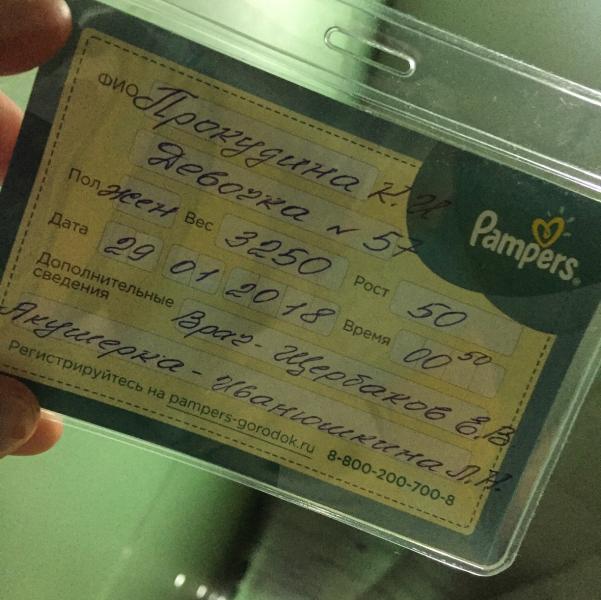 ФИО Прокудина К.И
Девочка № 57
Пол жен Вес 3250 Рост 50
Дата 29 01 2018 Время 00 50
Дополнительные сведения Врач - Щербаков Е.В
Акушерка - Иванюшкина Л.Н.
Регистрируйтесь на pampers-gorodok.ru 8-800-200-700-8
Pampers®